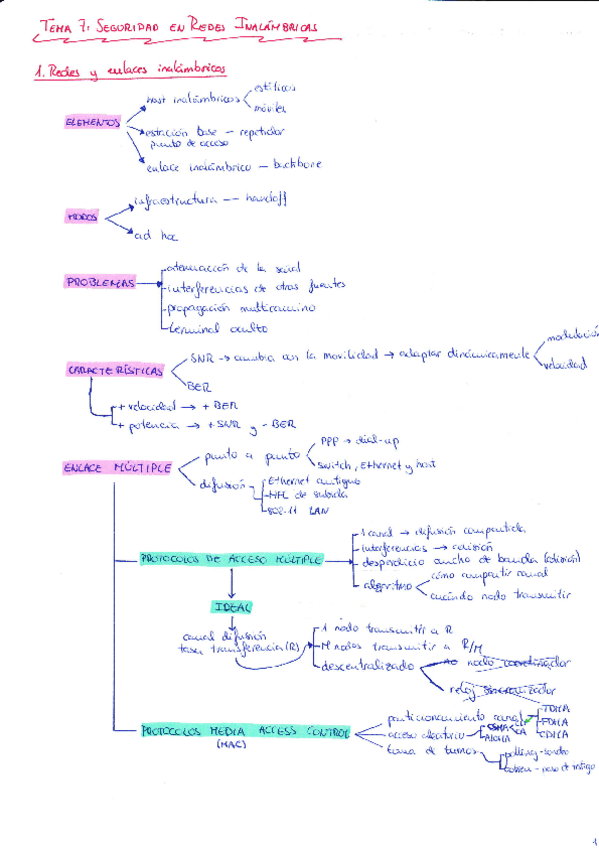 TEMA 7: SEGURIDAD EN REDES INALÁMBRICAS
1. Redes y enlaces inalámbricos
ELEMENTOS
host inalámbricos
estáticos
móviles
estación base — repetidor
punto de acceso
enlace inalámbrico — backbone
MODOS
infraestructura -- handoff
ad hoc
PROBLEMAS
atenuación de la señal
interferencias de otras fuentes
propagación multicamino
terminal oculto
CARACTERÍSTICAS
SNR → cambia con la movilidad → adaptar dinámicamente
modulación
velocidad
BER
+ velocidad → + BER
+ potencia → + SNR y - BER
ENLACE MÚLTIPLE
punto a punto
PPP → dial-up
switch, Ethernet y host
difusión
Ethernet antiguo
HFC de subida
802.11 LAN
PROTOCOLOS DE ACCESO MÚLTIPLE
1 canal → difusión compartida
interferencias → colisión
desperdicio ancho de banda (colisión)
algoritmo
cómo compartir canal
cuándo nodo transmitir
IDEAL
canal difusión
tasa transferencia (R)
1 nodo transmitir a R
M nodos transmitir a R/M
descentralizado
no nodo coordinador
reloj sincronizador
PROTOCOLOS MEDIA ACCESS CONTROL
(MAC)
particionamiento canal
TDMA
FDMA
CDMA
acceso aleatorio
CSMA
CD
CA
ALOHA
toma de turnos
polling - sondeo
token - paso de testigo
1